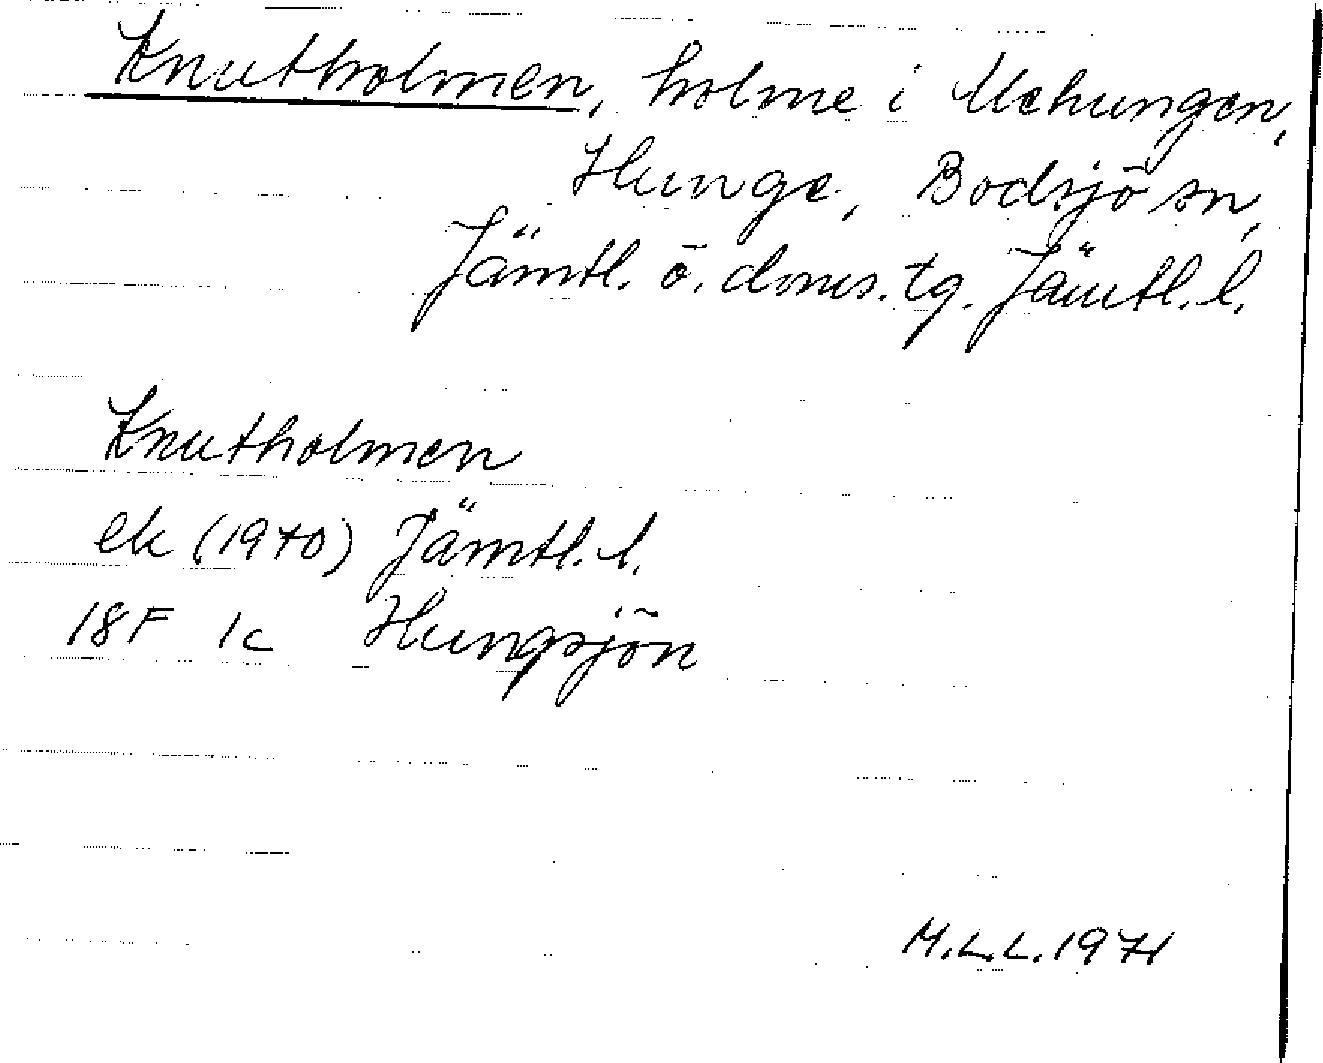 Knutholmen, holme i Mehungen,
Hunge, Bodsjö sn,
Jämtl. ö. doms. tg. Jämtl. l.
Knutholmen
ek (1970) Jämtl. l.
18F 1c Hungsjön
M.L.L. 1971